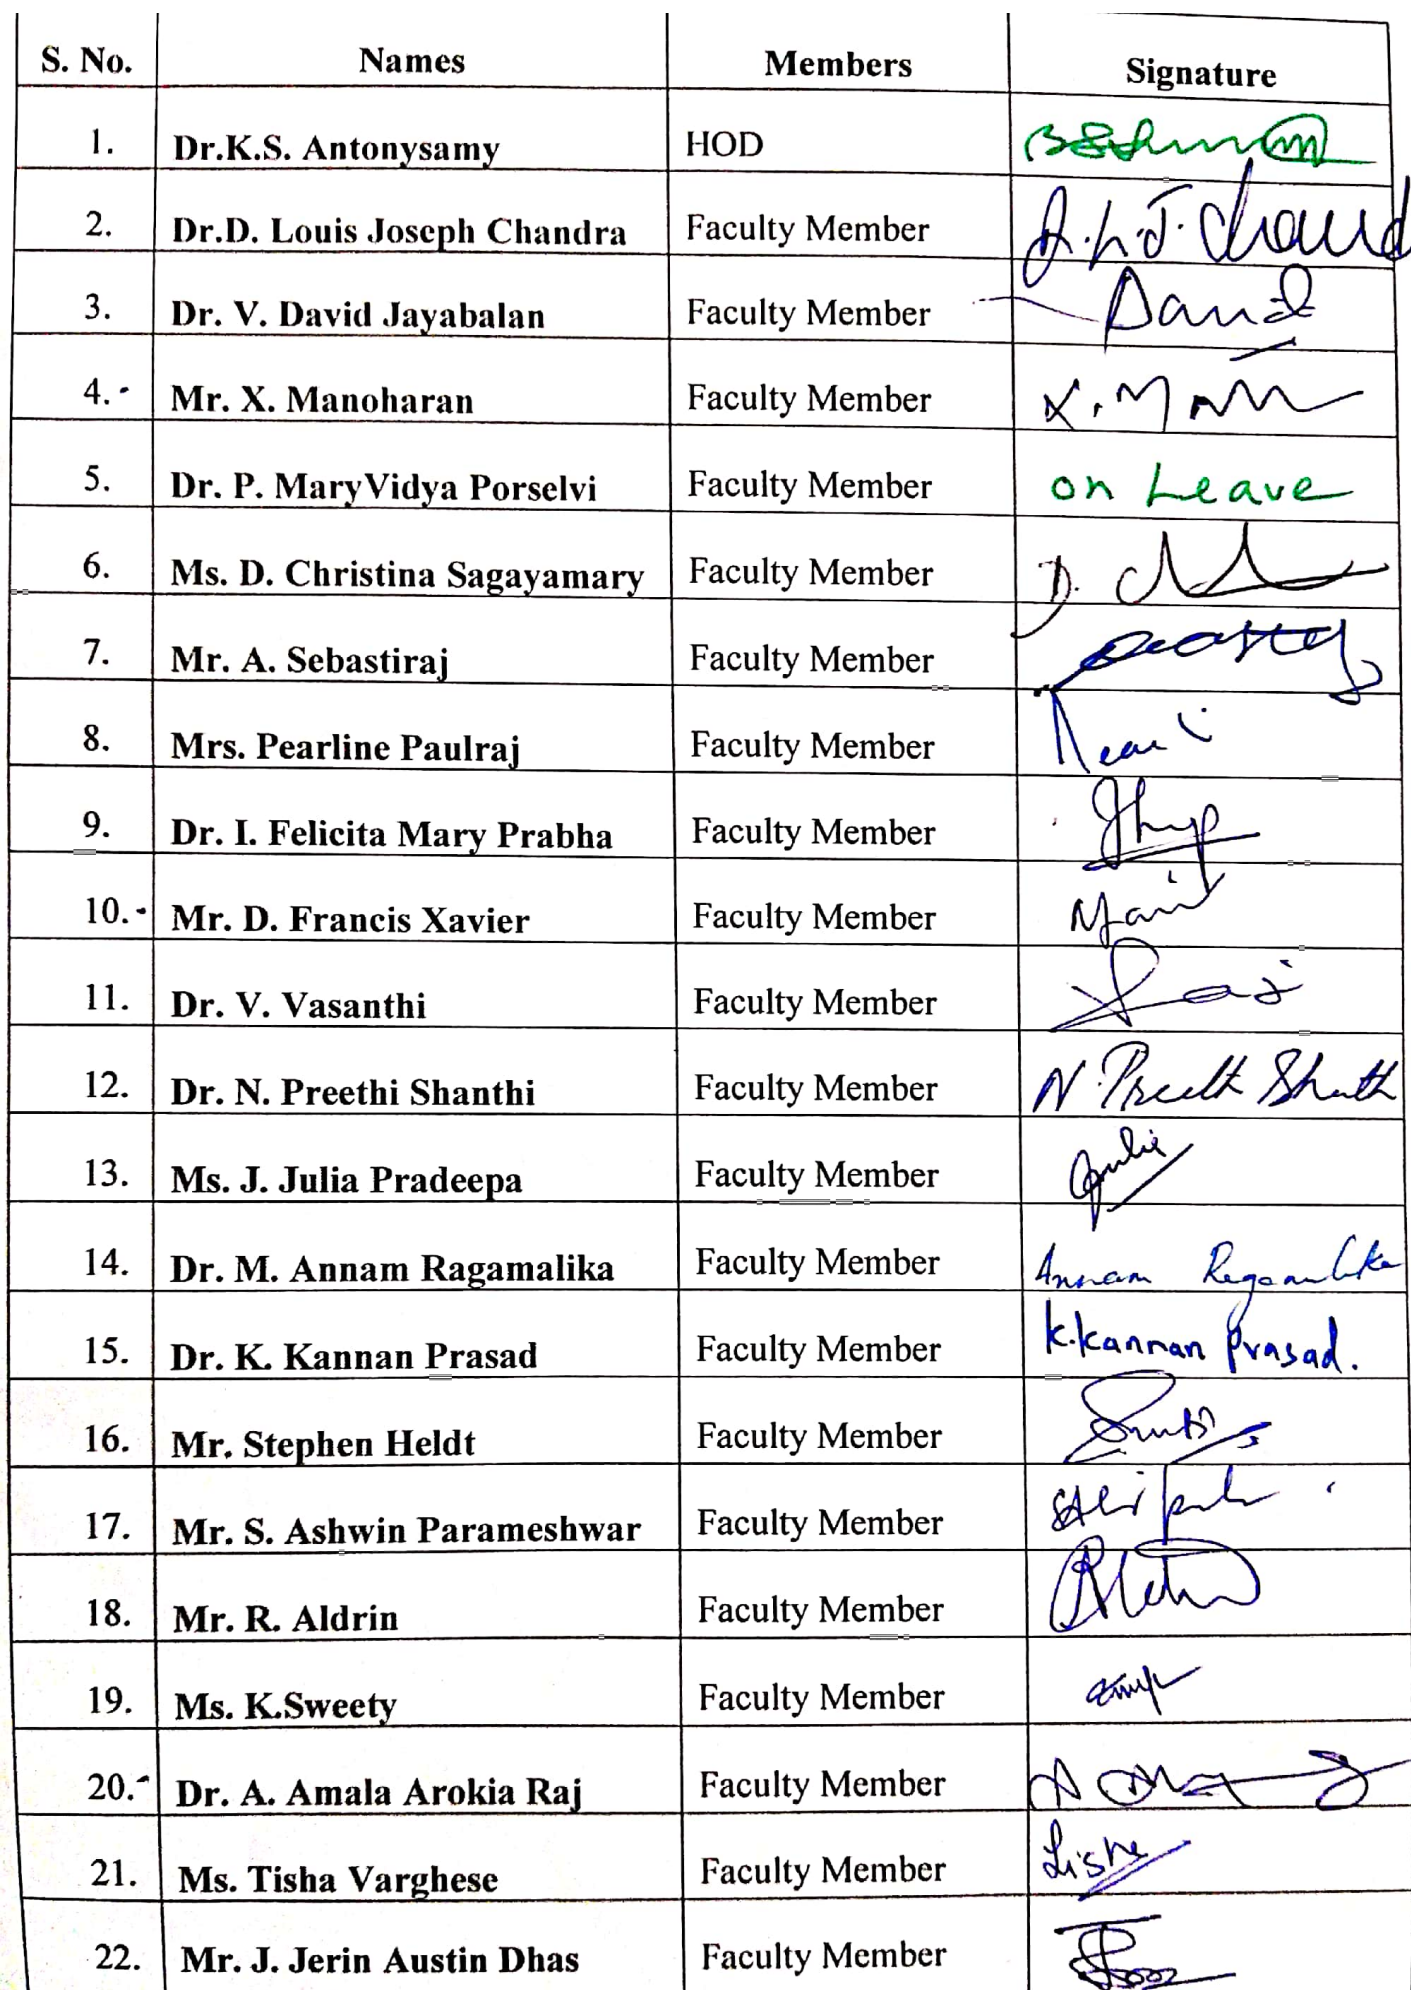 S. No. Names Members Signature
1. Dr.K.S. Antonysamy HOD
2. Dr.D. Louis Joseph Chandra Faculty Member
3. Dr. V. David Jayabalan Faculty Member David
4. Mr. X. Manoharan Faculty Member
5. Dr. P. MaryVidya Porselvi Faculty Member on Leave
6. Ms. D. Christina Sagayamary Faculty Member
7. Mr. A. Sebastiraj Faculty Member
8. Mrs. Pearline Paulraj Faculty Member
9. Dr. I. Felicita Mary Prabha Faculty Member
10. Mr. D. Francis Xavier Faculty Member
11. Dr. V. Vasanthi Faculty Member
12. Dr. N. Preethi Shanthi Faculty Member
13. Ms. J. Julia Pradeepa Faculty Member
14. Dr. M. Annam Ragamalika Faculty Member Annam Ragamalika
15. Dr. K. Kannan Prasad Faculty Member K.Kannan Prasad.
16. Mr. Stephen Heldt Faculty Member
17. Mr. S. Ashwin Parameshwar Faculty Member
18. Mr. R. Aldrin Faculty Member
19. Ms. K.Sweety Faculty Member
20. Dr. A. Amala Arokia Raj Faculty Member
21. Ms. Tisha Varghese Faculty Member
22. Mr. J. Jerin Austin Dhas Faculty Member